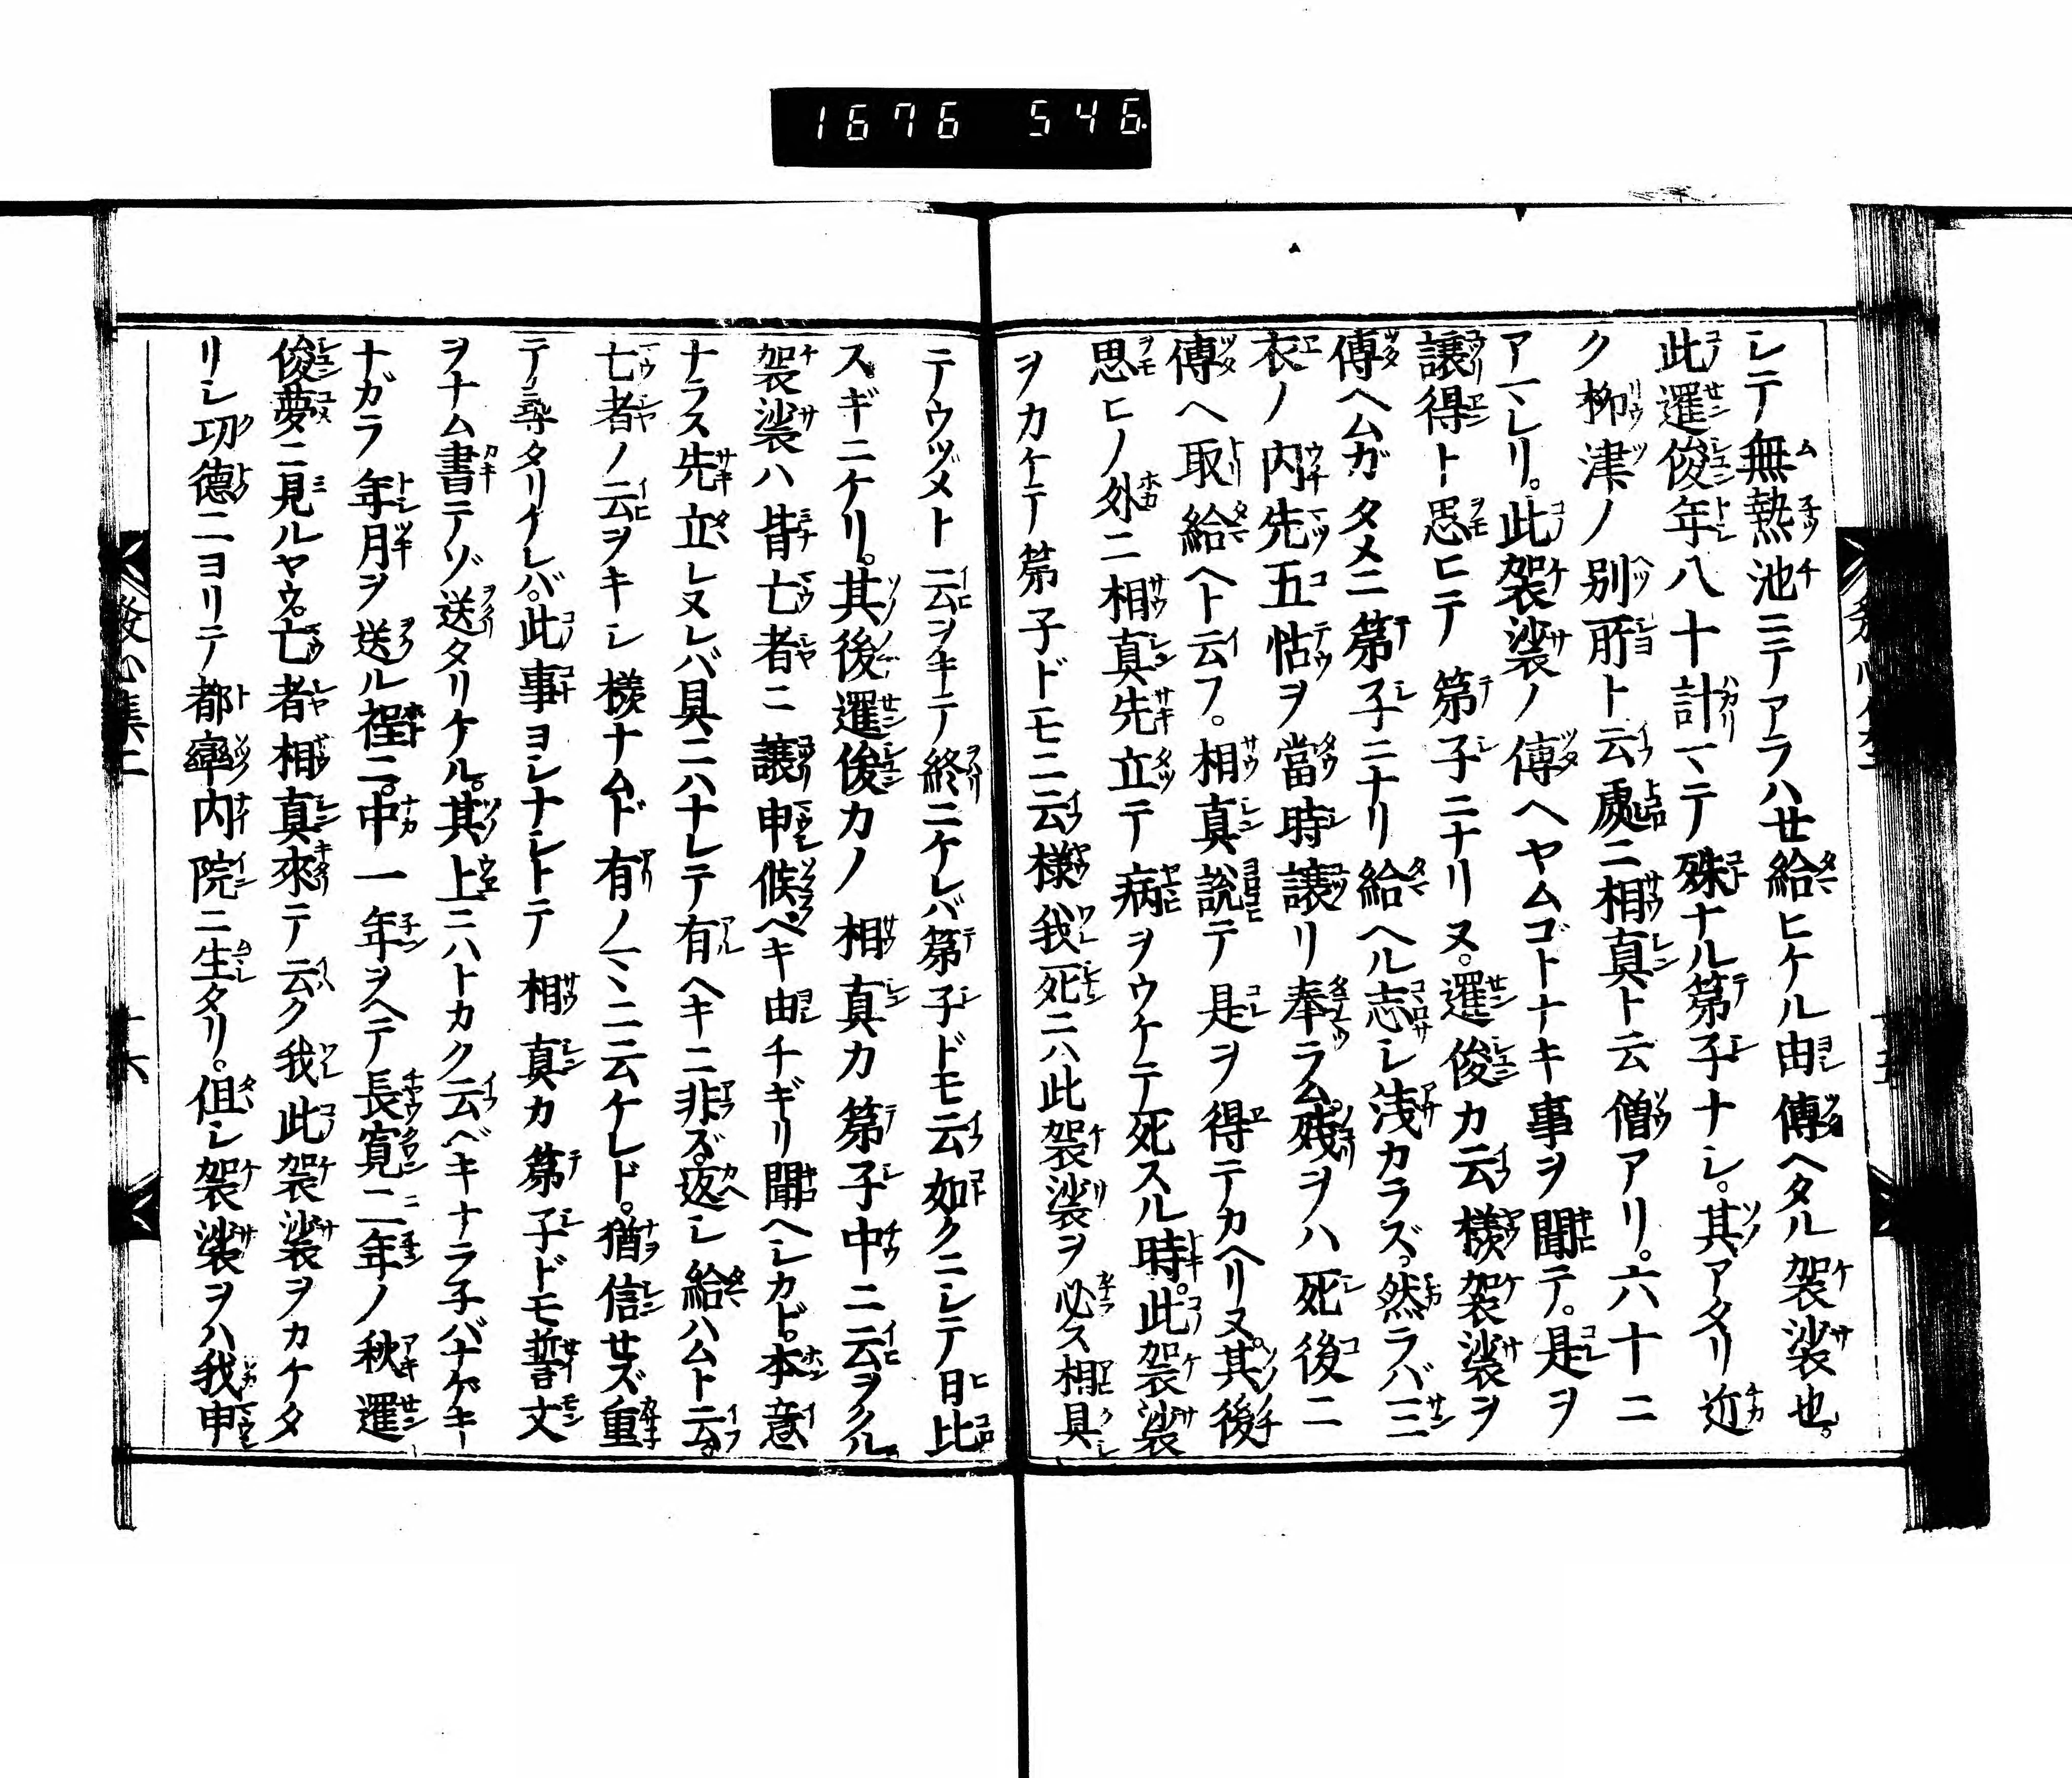 1676 546
シテ無熱池ニテアラハせ給ヒケル由傳ヘタル袈裟也。
此暹俊年八十計マテ殊ナル第子ナシ。其アタリ近
ク柳津ノ別所ト云處ニ相真ト云僧アリ。六十ニ
アマレリ。此袈裟ノ傳ヘヤムゴトナキ事ヲ聞テ。是ヲ
譲得ト思ヒテ第子ニナリヌ。暹俊カ云様袈裟ヲ
傳ヘムガタメニ第子ニナリ給ヘル志シ浅カラズ。然ラバ三
衣ノ内先五帖ヲ當時譲リ奉ラム。残ヲハ死後ニ
傳ヘ取給ヘト云フ。相真説テ是ヲ得テカヘリヌ。其後
思ヒノ外ニ相真先立テ病ヲウケテ死スル時。此袈裟
ヲカケテ第子ドモニ云様我死ニハ此袈裟ヲ必ス相具
テウヅメト云ヲキテ終ニケレバ第子ドモ云如クニシテ日比
スギニケリ。其後暹俊カノ相真カ第子中ニ云ヲクル。
袈裟ハ皆亡者ニ譲申候ベキ由チギリ聞ヘシカド。本意
ナラス先立レヌレバ具ニハナレテ有ヘキニ非ズ。返シ給ハムト云。
亡者ノ云ヲキシ様ナムド有ノマヽニ云ケレド。猶信せズ重
テ尋タリケレバ。此事ヨシナシトテ相真カ第子ドモ誓文
ヲナム書テゾ送タリケル。其上ニハトカク云ベキナラ子バナゲキ
ナガラ年月ヲ送ル程ニ。中一年ヲヘテ長寛二年ノ秋暹
俊夢ニ見ルヤウ。亡者相真來テ云ク我此袈裟ヲカケタ
リシ功德ニヨリテ都率内院ニ生タリ。但シ袈裟ヲハ我申
發心集二
十六